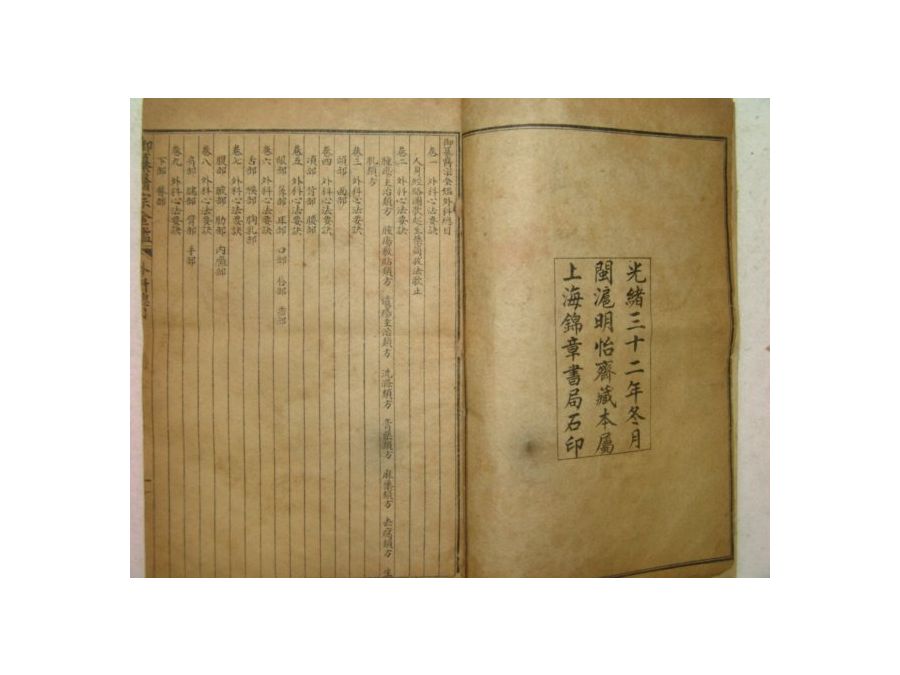 光緒三十二年冬月
閩滬明怡齋藏本屬
上海錦章書局石印
御纂醫宗金鑑外科總目
卷一 外科心法要訣
卷二 外科心法要訣
腫瘍主治類方 腫瘍敷貼類方 潰瘍主治類方 洗滌類方 膏藥類方 麻藥類方 去腐類方 生
肌類方
卷三 外科心法要訣
頭部 面部
卷四 外科心法要訣
項部 背部 腰部
卷五 外科心法要訣
眼部 鼻部 耳部 口部 唇部 齒部
卷六 外科心法要訣
舌部 喉部 胸乳部
卷七 外科心法要訣
腹部 腋部 肋部 內癰部
卷八 外科心法要訣
肩部 臑部 臂部 手部
卷九 外科心法要訣
下部 臀部
御纂醫宗金鑑